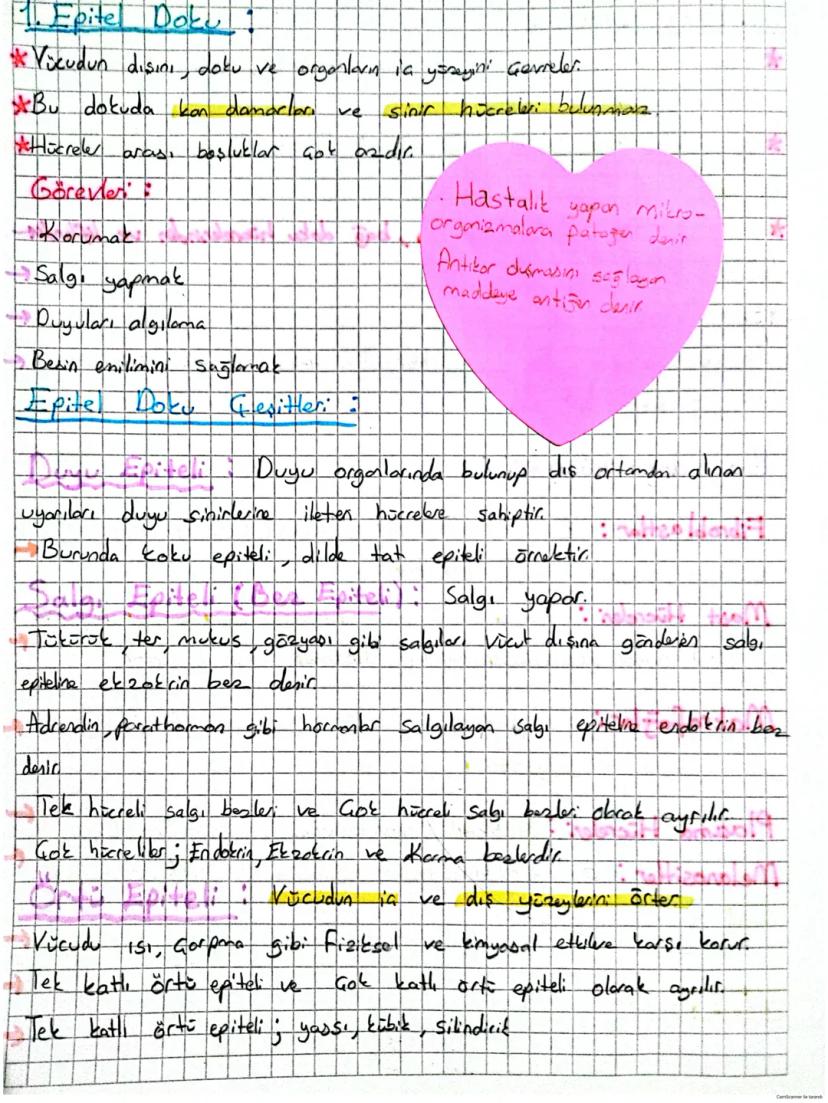 1. Epitel Doku :
* Vücudun dışını, doku ve organların iç yüzeyini çevreler.
* Bu dokuda kan damarları ve sinir hücreleri bulunmaz.
* Hücreler arası boşluklar çok azdır.
Görevleri :
→ Korumak
→ Salgı yapmak
→ Duyuları algılama
→ Besin emilimini sağlamak
. Hastalık yapan mikro-
organizmalara patojen denir
Antikor oluşmasını sağlayan
maddeye antijen denir
Epitel Doku Çeşitleri :
Duyu Epiteli : Duyu organlarında bulunup dış ortamdan alınan
uyarıları duyu sinirlerine ileten hücrelere sahiptir.
→ Burunda koku epiteli, dilde tat epiteli örnektir.
Salgı Epiteli (Bez Epiteli) : Salgı yapar.
→ Tükürük, ter, mukus, gözyaşı gibi salgıları vücut dışına gönderen salgı
epiteline ekzokrin bez denir.
→ Adrenalin, parathormon gibi hormonlar salgılayan salgı epiteline endokrin bez
denir.
→ Tek hücreli salgı bezleri ve Çok hücreli salgı bezleri olarak ayrılır.
→ Çok hücreliler ; Endokrin, Ekzokrin ve Karma bezlerdir.
Örtü Epiteli : Vücudun iç ve dış yüzeylerini örter.
→ Vücudu ısı, çarpma gibi fiziksel ve kimyasal etkilere karşı korur.
→ Tek katlı örtü epiteli ve Çok katlı örtü epiteli olarak ayrılır.
→ Tek katlı örtü epiteli ; yassı, kübik, silindirik
CamScanner ile tarandı